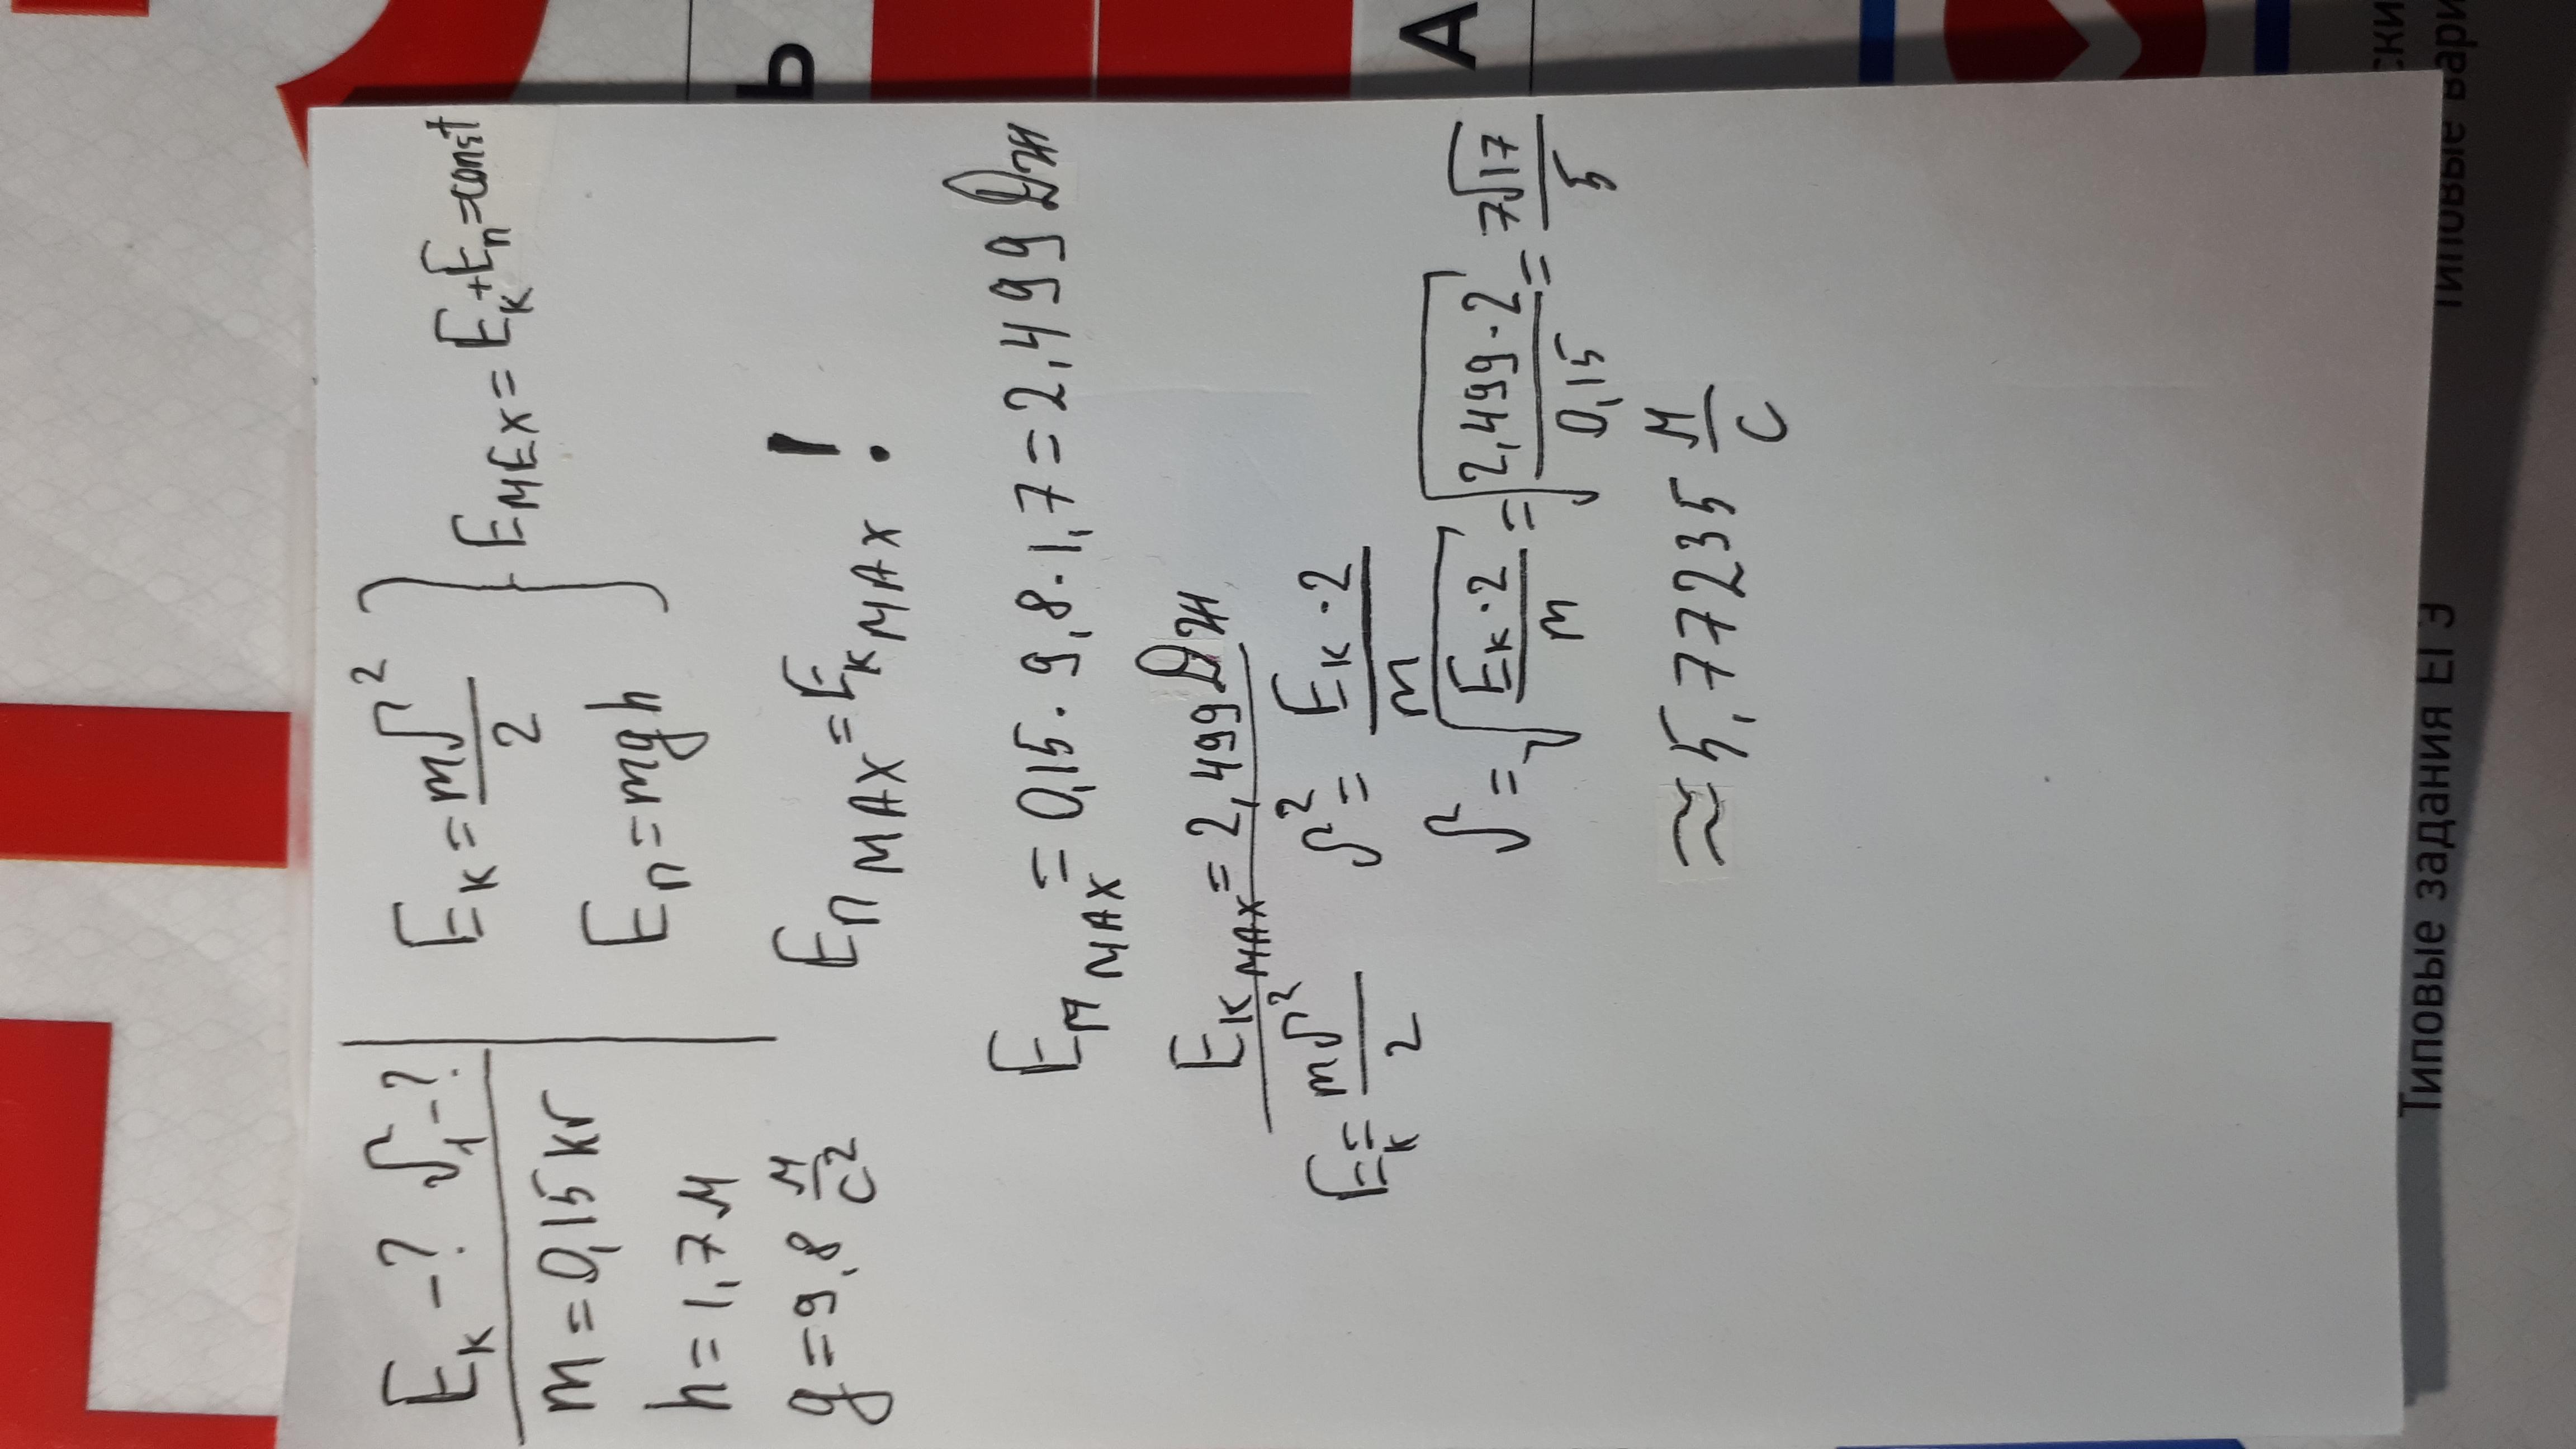 Eк - ? υ₁ - ?
m = 0,15 кг
h = 1,7 м
g = 9,8 м/с²
Eк = mυ²/2
Eп = mgh
Eмех = Eк + Eп = const
Eп мах = Eк мах !
Eп мах = 0,15 · 9,8 · 1,7 = 2,499 Дж
Eк мах = 2,499 Дж
Eк = mυ²/2 υ² = Eк · 2/m
υ = √(Eк · 2/m) = √(2,499 · 2/0,15) = 7√17/5
≈ 5,77235 м/с
Ь
А
Типовые задания ЕГЭ
Типовые вари
ски